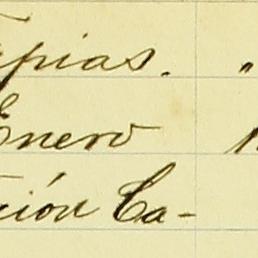 apias. "
Enero
ción Ca-